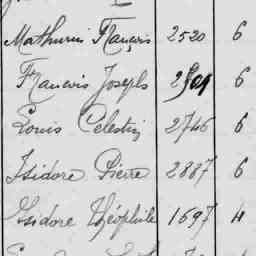 Mathurin François 2520 6
François Joseph 2501 6
Louis Célestin 2746 6
Isidore Pierre 2887 6
Isidore Théophile 1697 4